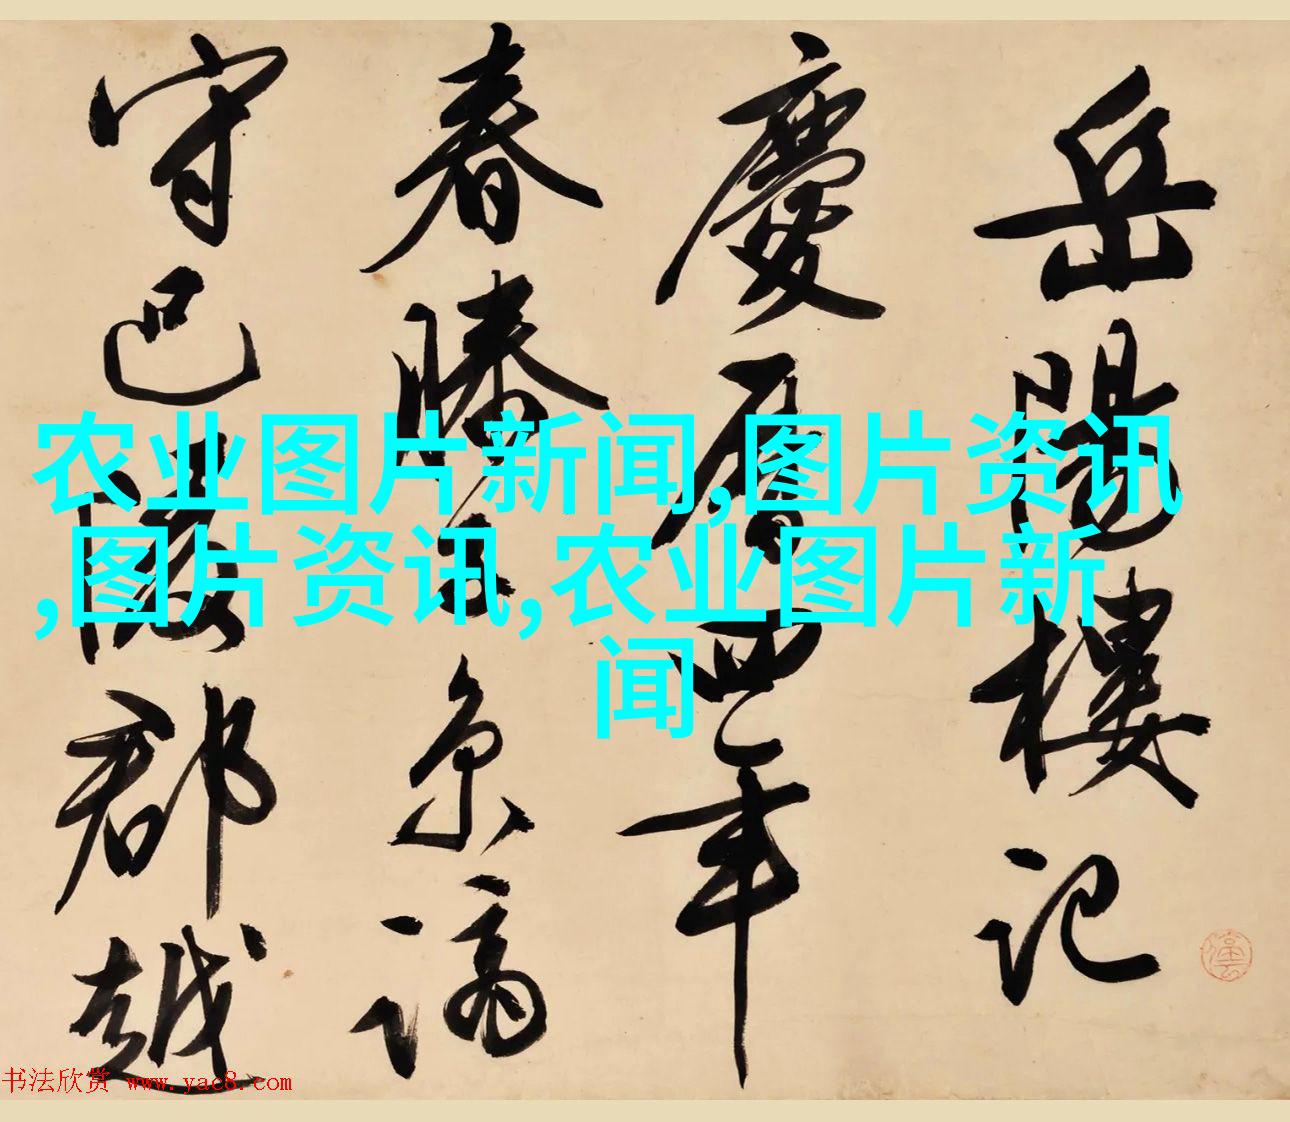 岳陽樓記
慶曆四年
春滕子京謫
守巴陵郡越
农业图片新闻,图片资讯
,图片资讯,农业图片新
闻
书法欣赏 www.yac8.com